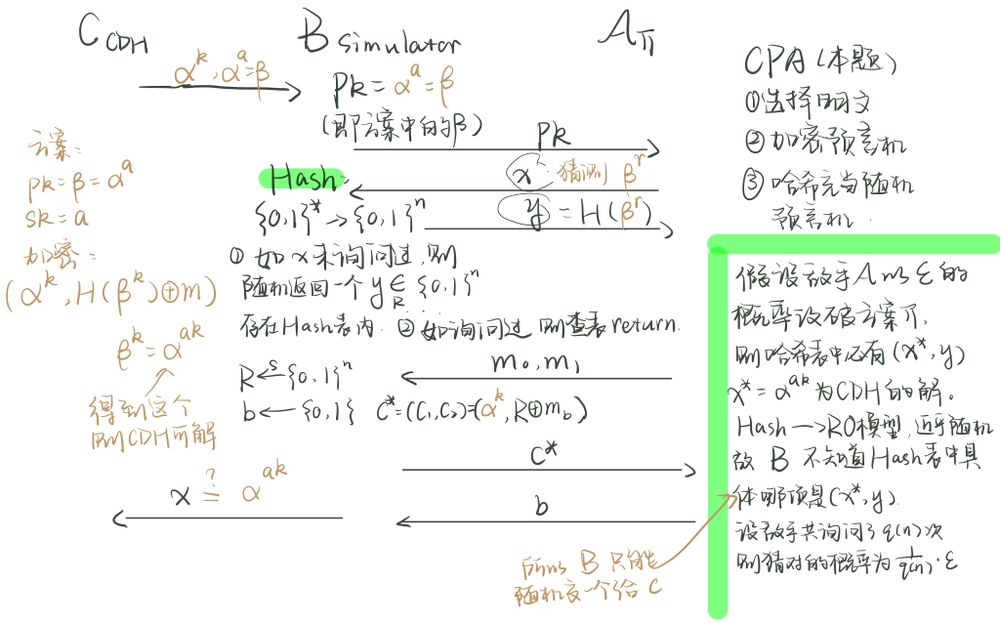 C_CDH
B simulator
A_Π
α^k, α^a=β
pk = α^a = β
(即方案中的β)
pk
方案:
pk = β = α^a
sk = a
加密:
(α^k, H(β^k)⊕m)
β^k = α^{ak}
得到这个
则CDH可解
Hash:
{0,1}^* → {0,1}^n
x 猜测 β^r
y = H(β^r)
① 如x未询问过,则
随机返回一个 y ∈_R {0,1}^n
存在Hash表内. ② 如询问过 则查表return.
m₀, m₁
R ←^$ {0,1}^n
b ← {0,1} C* = (C₁, C₂) = (α^k, R⊕m_b)
C*
x ≟ α^{ak}
b
所以 B 只能
随机交一个给 C
CPA (本题)
① 选择明文
② 加密预言机
③ 哈希充当随机
预言机.
假设敌手A以ε的
概率攻破方案Π,
则哈希表中必有(x*, y)
x* = α^{ak} 为CDH的解.
Hash → RO模型, 近乎随机
故 B 不知道Hash表中具
体哪项是(x*, y).
设敌手共询问了q(n)次
则猜对的概率为 1/q(n)·ε